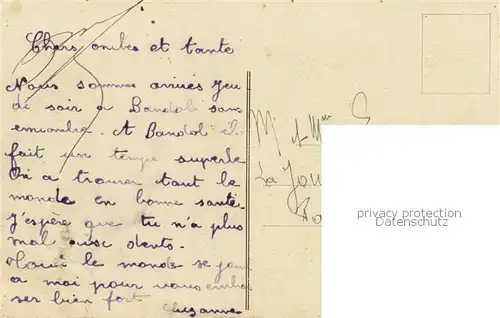 Chers oncles et tante
Nous sommes arrivés jeu
di soir a Bandol sans
encombre. A Bandol il
fait un temps superbe
On a trouver tout le
monde en bonne santé.
J'espère que tu n'a plus
mal aux dents.
le monde se joint
a moi pour vous embras
ser bien fort
Suzanne
M. & Mme
La
privacy protection
Datenschutz